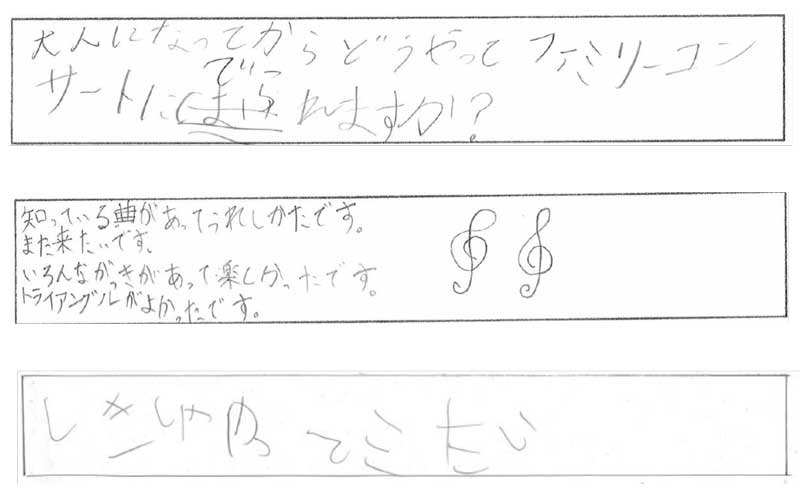 大人になってからどうやってファミリーコン
サートに れますか?
知っている曲があってうれしかたです。
また来たいです、
いろんながっきがあって楽しかったです。
トライアングルがよかったです。
しきしゃやってみたい